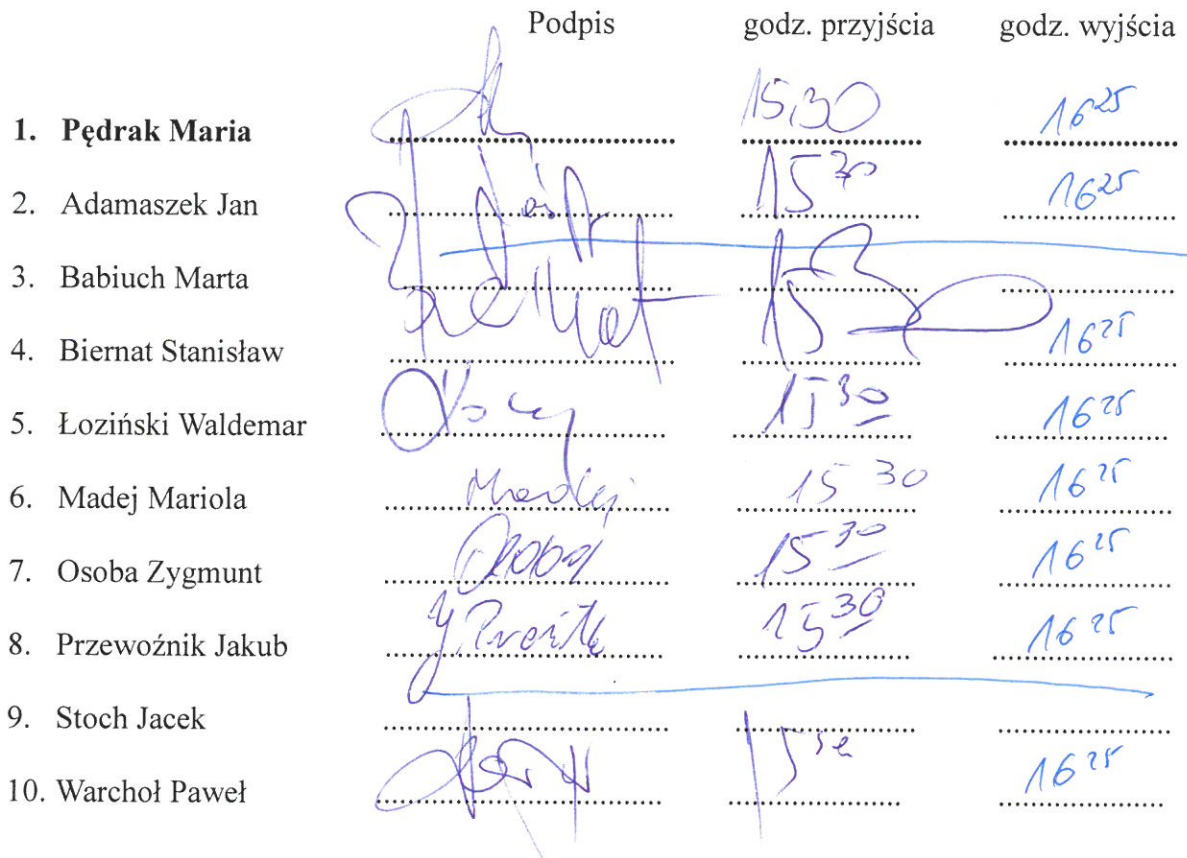 Podpis godz. przyjścia godz. wyjścia
1. Pędrak Maria 15.30 16 25
2. Adamaszek Jan 15 30 16 25
3. Babiuch Marta
4. Biernat Stanisław 15 30 16 25
5. Łoziński Waldemar 15 30 16 25
6. Madej Mariola Madej 15 30 16 25
7. Osoba Zygmunt Osoba 15 30 16 25
8. Przewoźnik Jakub 15 30 16 25
9. Stoch Jacek
10. Warchoł Paweł 15 30 16 25